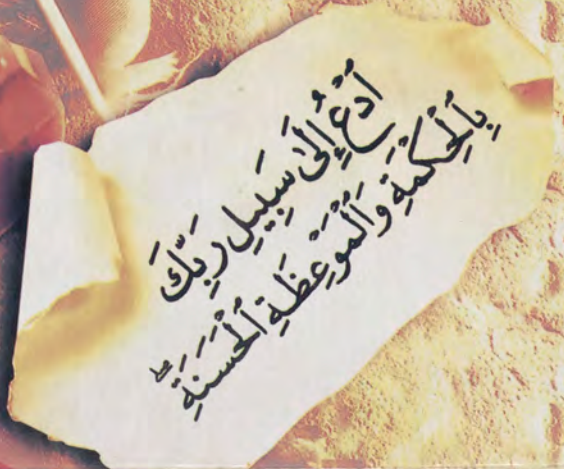 ٱدْعُ إِلَىٰ سَبِيلِ رَبِّكَ
بِٱلْحِكْمَةِ وَٱلْمَوْعِظَةِ ٱلْحَسَنَةِ ۖ